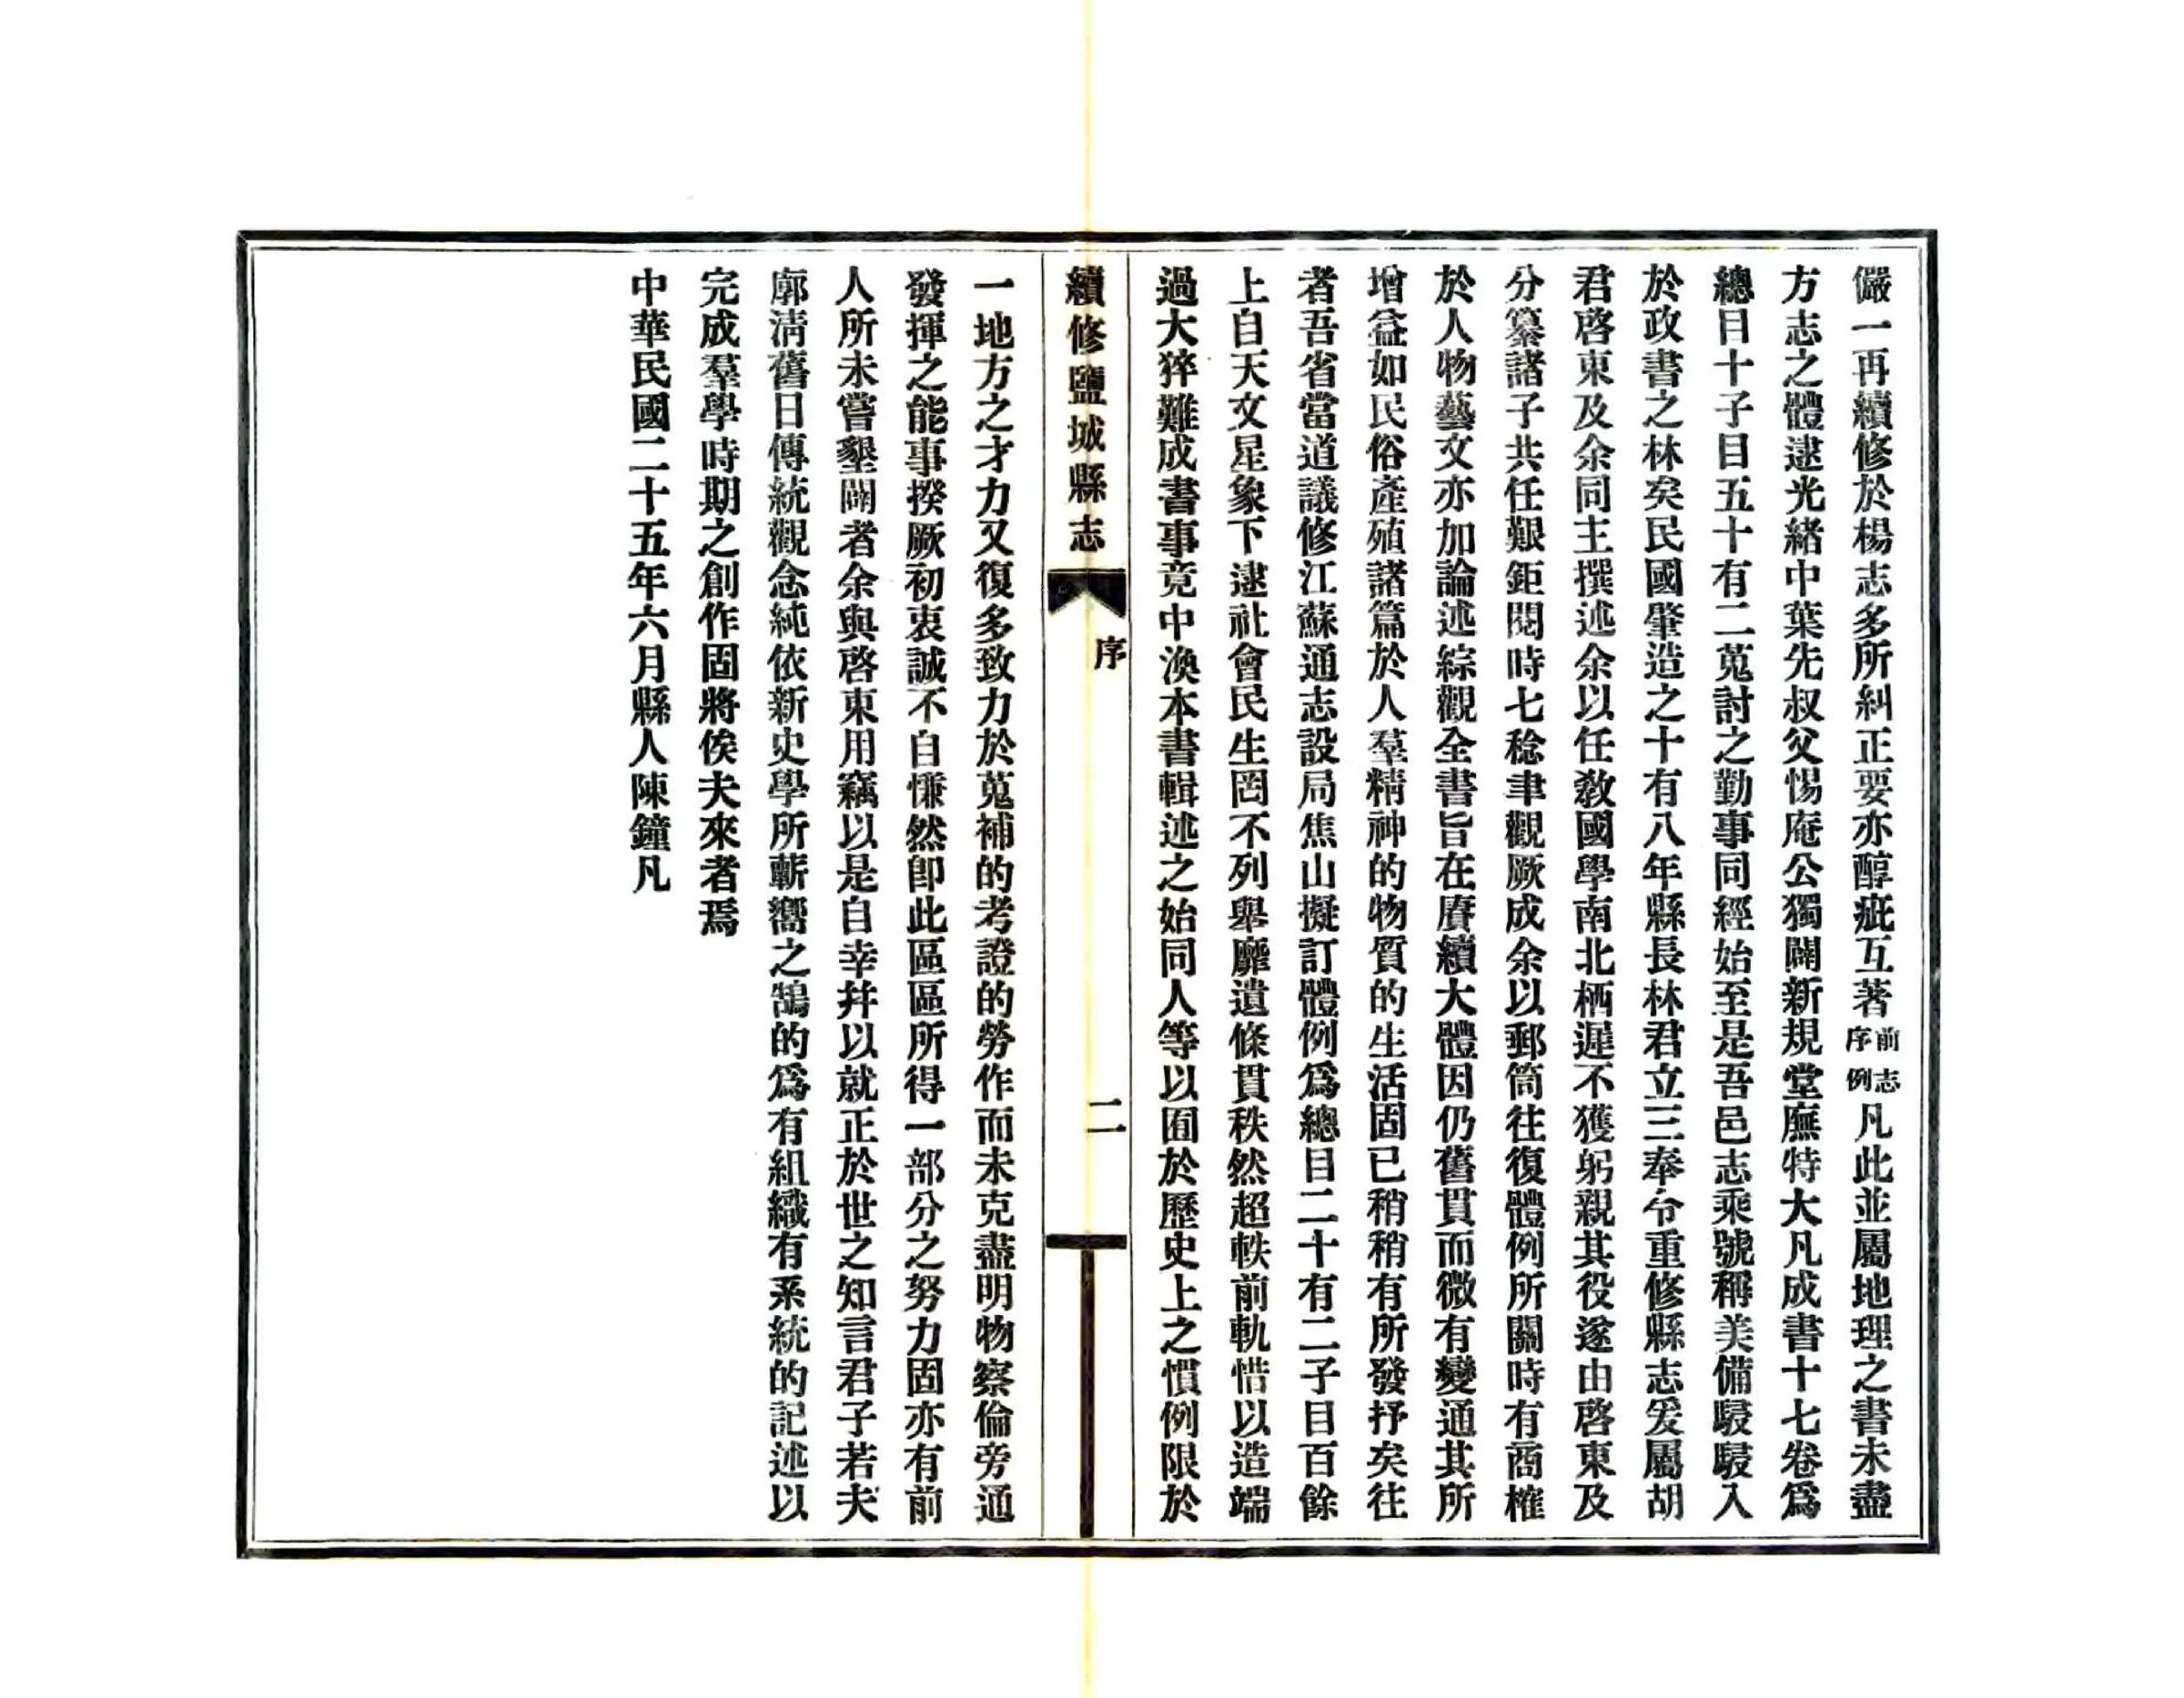 儼一再續修於楊志多所糾正要亦醇疵互著前志序例凡此並屬地理之書未盡
方志之體逮光緒中葉先叔父惕庵公獨闢新規堂廡特大凡成書十七卷爲
總目十子目五十有二蒐討之勤事同經始至是吾邑志乘號稱美備駸駸入
於政書之林矣民國肇造之十有八年縣長林君立三奉令重修縣志爰屬胡
君啓東及余同主撰述余以任敎國學南北栖遲不獲躬親其役遂由啓東及
分纂諸子共任艱鉅閱時七稔聿觀厥成余以郵筒往復體例所關時有商榷
於人物藝文亦加論述綜觀全書旨在賡續大體因仍舊貫而微有變通其所
增益如民俗產殖諸篇於人羣精神的物質的生活固已稍稍有所發抒矣往
者吾省當道議修江蘇通志設局焦山擬訂體例爲總目二十有二子目百餘
上自天文星象下逮社會民生罔不列舉靡遺條貫秩然超軼前軌惜以造端
過大猝難成書事竟中渙本書輯述之始同人等以囿於歷史上之慣例限於
續修鹽城縣志
序
二
一地方之才力又復多致力於蒐補的考證的勞作而未克盡明物察倫旁通
發揮之能事揆厥初衷誠不自慊然卽此區區所得一部分之努力固亦有前
人所未嘗墾闢者余與啓東用竊以是自幸幷以就正於世之知言君子若夫
廓淸舊日傳統觀念純依新史學所蘄嚮之鵠的爲有組織有系統的記述以
完成羣學時期之創作固將俟夫來者焉
中華民國二十五年六月縣人陳鐘凡